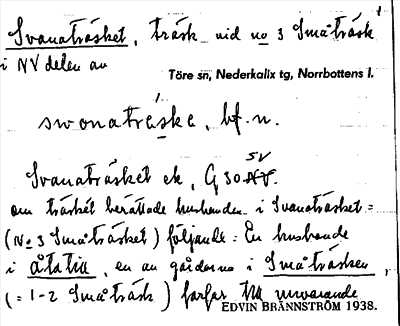 Svanaträsket, träsk vid no 3 Småträsk
i NV delen av
Töre sn, Nederkalix tg, Norrbottens l.
swonatráska, bf. n.
SV
Svanaträsket ek, G 30 NV.
om träsket berättade husbonden i Svanaträsket =
(No 3 Småträsket) följande: En husbonde
i åtatia, en av gårdarna i Småträsken,
(= 1-2 Småträsk) farfar till nuvarande
EDVIN BRÄNNSTRÖM 1938.